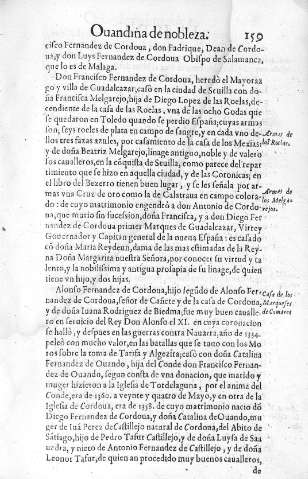 Ouandiña de nobleza. 159
cisco Fernandez de Cordoua, don Fadrique, Dean de Cordo-
ua, y don Luys Fernandez de Cordoua Obispo de Salamanca,
que lo es de Malaga.
Don Francisco Fernandez de Cordoua, heredó el Mayoraz
go y villa de Guadalcazar, casó en la ciudad de Seuilla con do
ña Francisca Melgarejo, hija de Diego Lopez de las Roelas, de-
cendiente de la casa de las Roelas, vna de las ocho Godas que
se quedaron en Toledo quando se perdio España; cuyas armas
son, seys roeles de plata en campo de sangre, y en cada vno de-
llos tres faxas azules, por casamiento de la casa de los Mexias:
Armas de los Roelas.
y de doña Beatriz Melgarejo, linage antiguo, noble y de valero
sos caualleros, en la cõquista de Seuilla, como parece del repar
timiento que se hizo en aquella ciudad, y de las Coronicas; en
el libro del Bezerro tienen buen lugar, y se les señala por ar-
mas vna Cruz de oro como la de Calatraua en campo colora-
Armas de los Melgarejos.
do: de cuyo matrimonio engendró a don Antonio de Cordo-
ua, que murio sin sucession, doña Francisca, y a don Diego Fer
nandez de Cordoua primer Marques de Guadalcazar, Virrey
Gouernador y Capitan general de la nueua España: es casado
cõ doña Maria dama de las mas estimadas de la Rey-
na Doña Margarita nuestra Señora, por conocer su virtud y ta
lento, y la nobilissima y antigua prosapia de su linage, de quien
tiene vn hijo, y dos hijas.
Alonso Fernandez de Cordoua, hijo segũdo de Alonso Fer-
nandez de Cordoua, señor de Cañete y de la casa de Cordoua,
Casa de los Marqueses de
y de doña Iuana Rodriguez de Biedma, fue muy buen cauallė-
ro en seruicio del Rey Don Alonso el XI. en cuya coronacion
se halló, y despues en las guerras contra Nauarra, año de 1334.
peleó con mucho valor, en las batallas que se tuuo con los Mo
ros sobre la toma de Tarifa y Algezira; casó con doña Catalina
Fernandez de Ouando, hija del Conde don Francisco Fernan-
dez de Ouando, segun consta de vna donacion, que marido y
muger hizieron a la Iglesia de Tordelaguna, por el anima del
Conde, era de 1380. a veynte y quatro de Mayo, y en otra de la
Iglesia de Cordoua, era de 1358. de cuyo matrimonio nacio dõ
Diego Fernandez de Cordoua, y doña Catalina de Ouando, mu
ger de Iuã Perez de Castillejo natural de Cordoua, del Abito de
Sãtiago, hijo de Pedro Tafur Castillejo, y de doña Luysa de Saa
uedra, y nieto de Antonio Fernandez de Castillejo, y de doña
Leonor Tafur, de quien an procedido muy buenos caualleros,
de